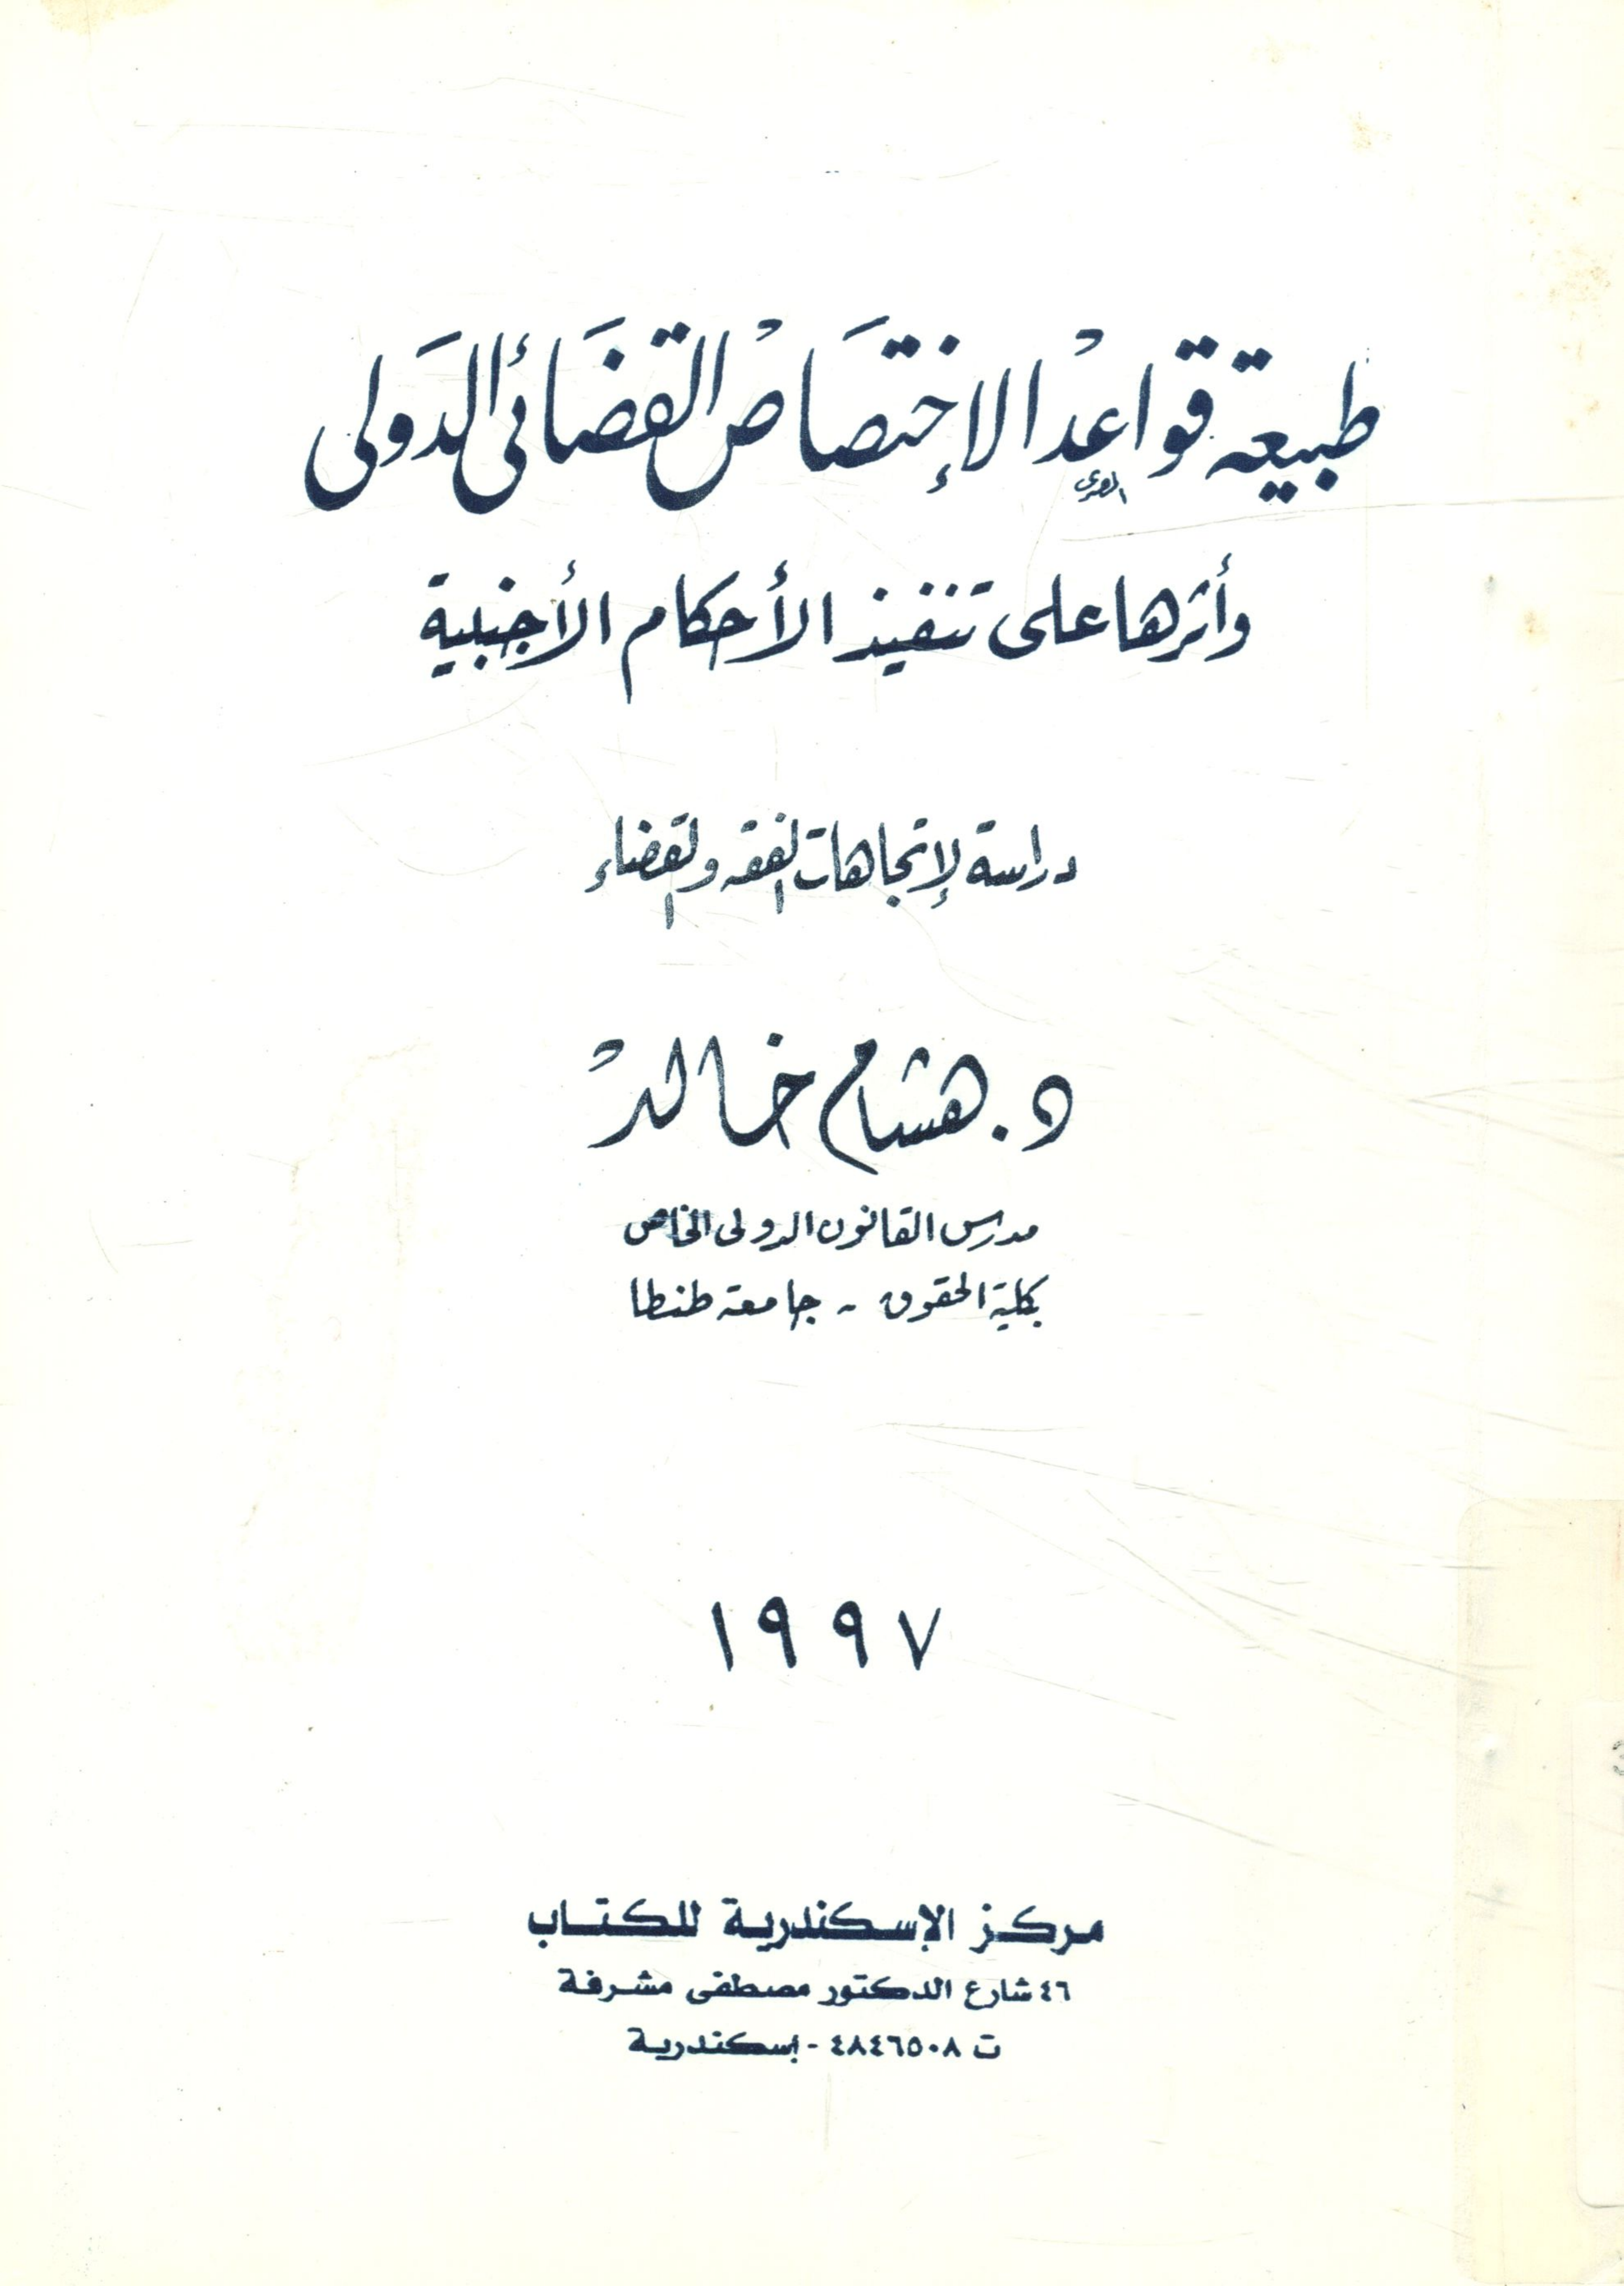 طبيعة قواعد الإختصاص القضائى الدولى
وأثرها على تنفيذ الأحكام الأجنبية
دراسة لإتجاهات الفقه والقضاء
د. هشام خالد
مدرس القانون الدولى الخاص
بكلية الحقوق - جامعة طنطا
١٩٩٧
مركز الإسكندرية للكتاب
٤٦ شارع الدكتور مصطفى مشرفة
ت ٤٨٤٦٥٠٨ - إسكندرية